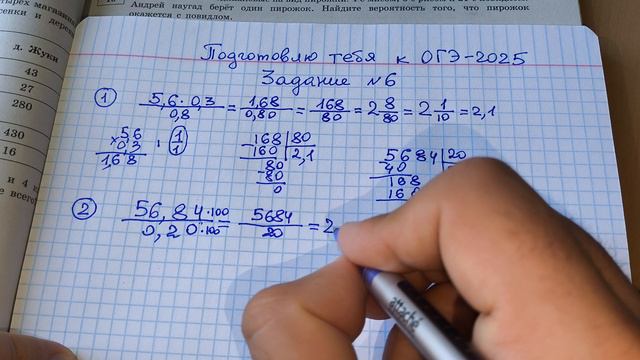 Андрей наугад берёт один пирожок. Найдите вероятность того, что пирожок
окажется с повидлом.
д. Жуки
43
27
280
430
16
Подготовлю тебя к ОГЭ-2025
Задание №6
1 5,6·0,3/0,8 = 1,68/0,80 = 168/80 = 2 8/80 = 2 1/10 = 2,1
×5,6
0,3
1,68
1/1
-168|80
160|2,1
-80
-80
0
-5684|20
40
168
16
2 56,84·100/0,20·100 = 5684/20 = 2
attaché